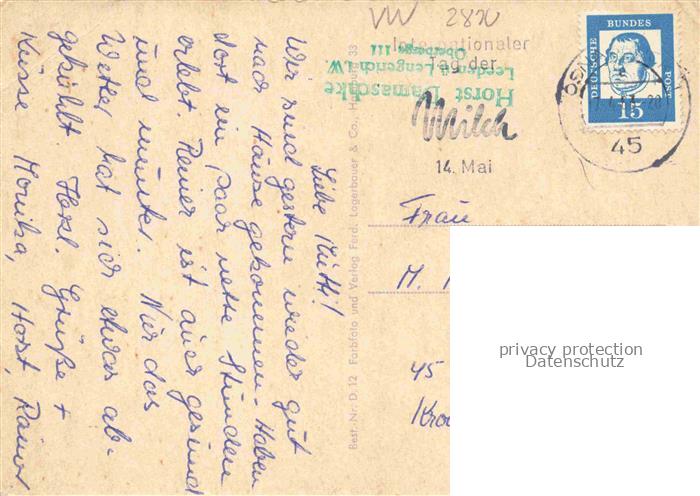 Liebe Mutti!
Wir sind gestern wieder gut
nach Hause gekommen. Haben
dort ein paar nette Stunden
erlebt. Reiner ist auch gesund
und munter. Nur das
Wetter hat sich etwas ab-
gekühlt. Herzl. Grüße +
Küsse Monika, Horst, Rainer
Best.-Nr. D. 12 Farbfoto und Verlag Ferd. Lagerbauer & Co., Hamburg 33
VW 2820
Internationaler
Tag der
Milch
14. Mai
Horst Damaschke
Leeden ü. Lengerich i.W.
Oberberge 111
DEUTSCHE
BUNDES
POST
15
45
Frau
M.
45
privacy protection
Datenschutz